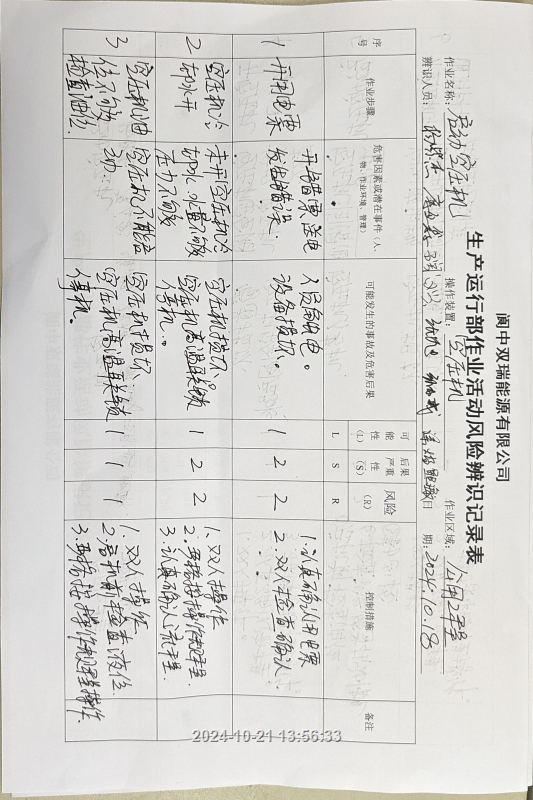 阆中双瑞能源有限公司
生产运行部作业活动风险辨识记录表
作业名称：启动空压机 操作装置：空压机 作业区域：公用工程
辨识人员： 日 期：2024.10.18
序号 作业步骤 危害因素或潜在事件（人、物、作业环境、管理） 可能发生的事故及危害后果 可能性（L） 后果严重性（S） 风险（R） 控制措施 备注
L S R
1 开用电票 开错票送电发生错误. 人员触电。设备损坏。 1 2 2 1.认真确认用电票 2.双人检查确认.
2 空压机冷却水开 未开空压机冷却水，水量不够压力不够 空压机损坏 空压机高温联锁停机。 1 2 2 1.双人操作 2.严格按操作规程 3.认真确认流程.
3 空压机油位不够检查油位. 空压机不能启动. 空压机损坏 空压机高温联锁停机。 1 1 1 1.双人操作 2.启机前检查液位. 3.严格按操作规程操作.
2024-10-21 13:56:33